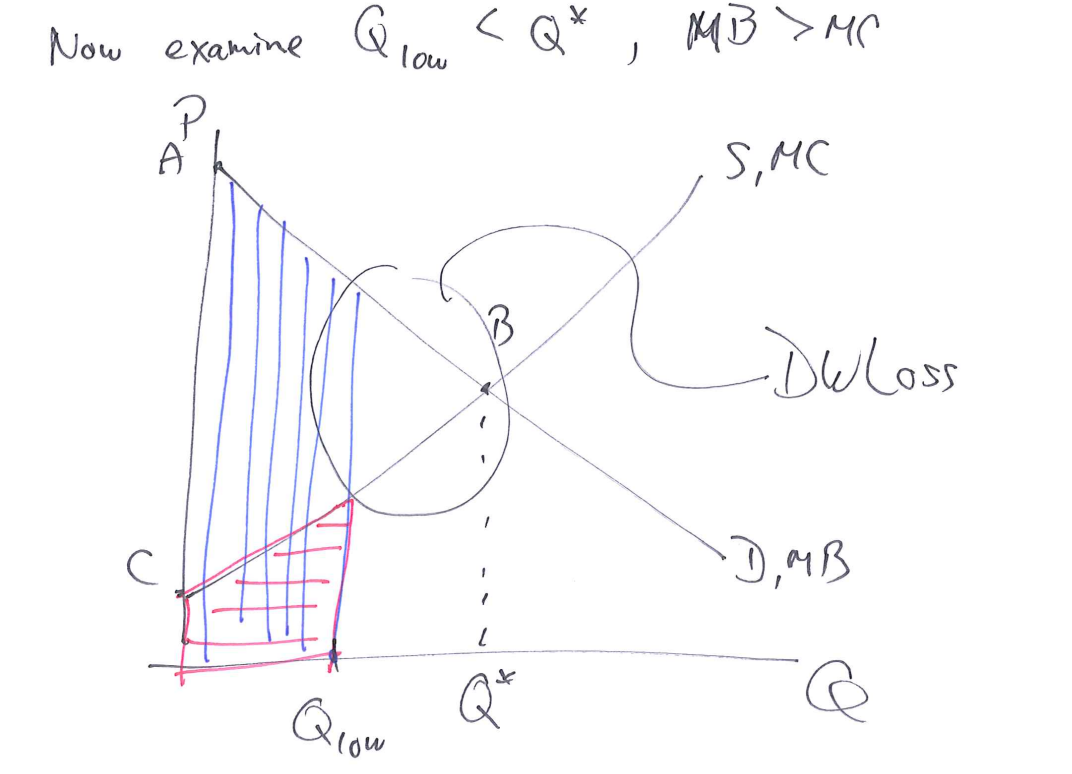 Now examine Q low < Q* , MB > MC
P
A
S, MC
B
DW Loss
C
D, MB
Q low
Q*
Q